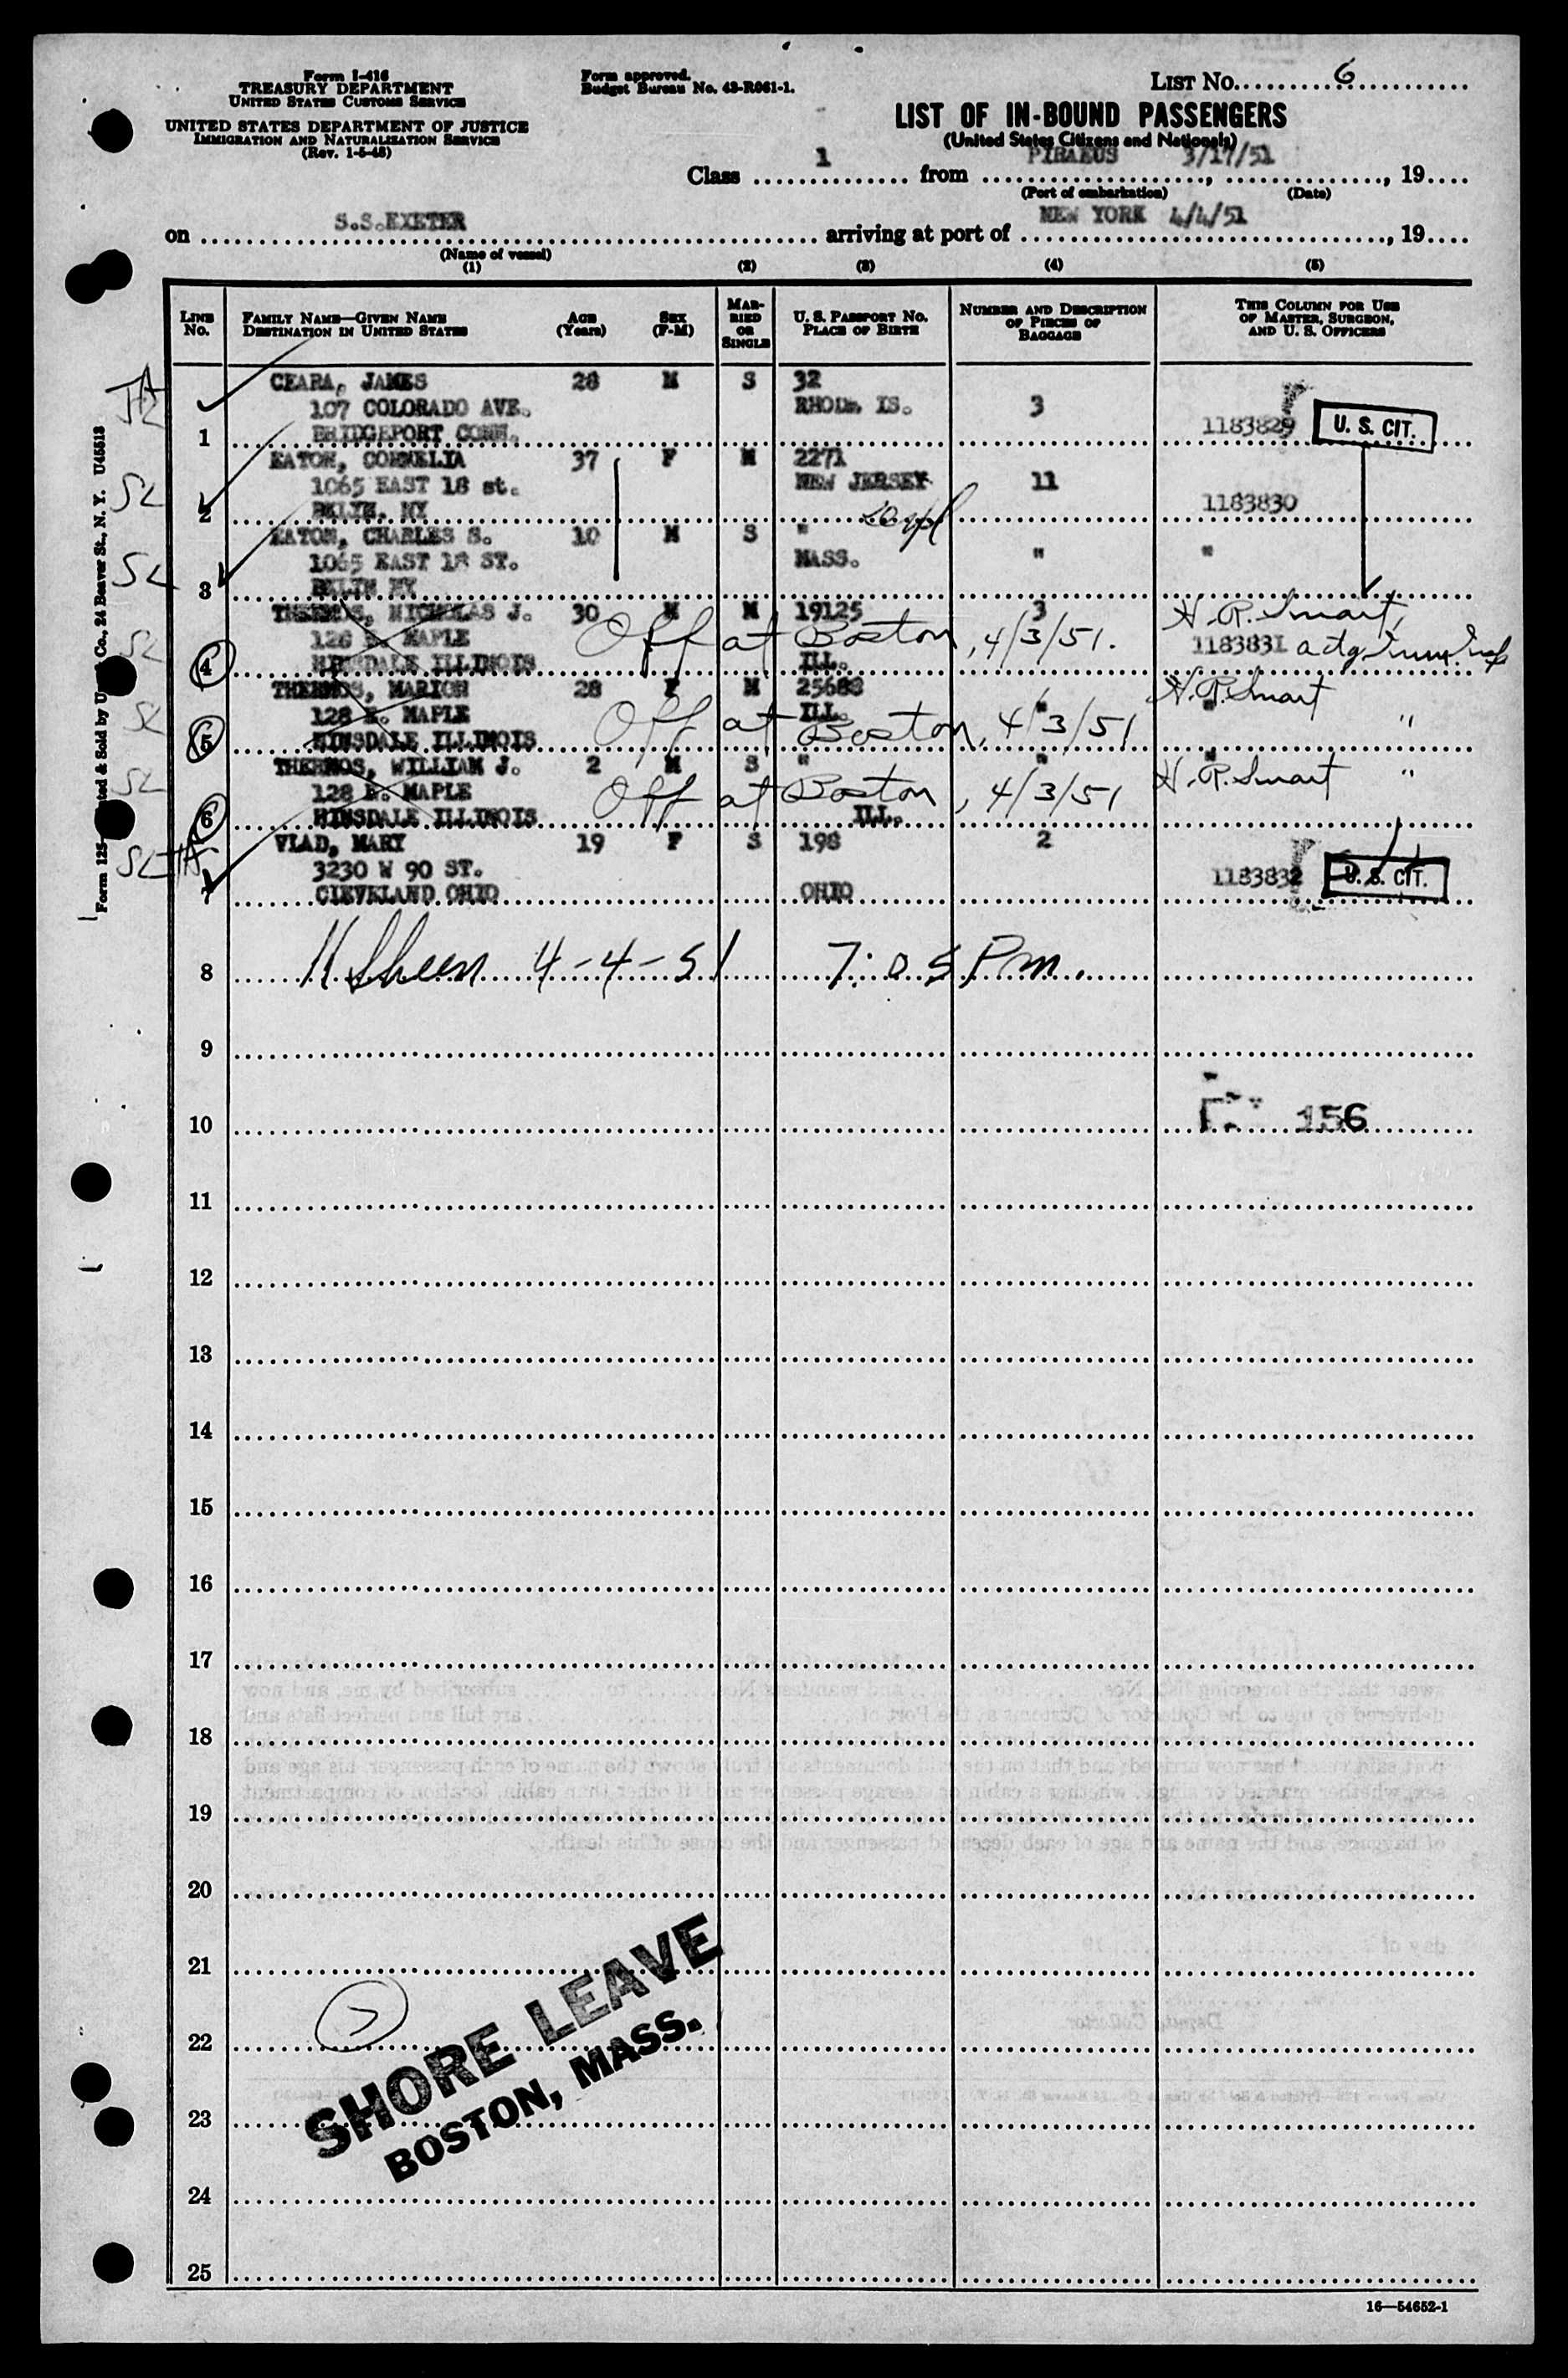 Form I-416
TREASURY DEPARTMENT
UNITED STATES CUSTOMS SERVICE
UNITED STATES DEPARTMENT OF JUSTICE
IMMIGRATION AND NATURALIZATION SERVICE
(Rev. 1-5-48)
Form approved.
Budget Bureau No. 43-R061-1.
LIST No. 6
LIST OF IN-BOUND PASSENGERS
(United States Citizens and Nationals)
Class 1 from PIRAEUS, 3/17/51, 19
(Port of embarkation) (Date)
on S.S.EXETER arriving at port of NEW YORK 4/4/51, 19
(Name of vessel)
(1) (2) (3) (4) (5)
LINE No. FAMILY NAME—GIVEN NAME DESTINATION IN UNITED STATES AGE (Years) SEX (F-M) MARRIED OR SINGLE U. S. PASSPORT NO. PLACE OF BIRTH NUMBER AND DESCRIPTION OF PIECES OF BAGGAGE THIS COLUMN FOR USE OF MASTER, SURGEON, AND U. S. OFFICERS
CEARA, JAMES 28 M S 32
107 COLORADO AVE. RHODE IS. 3
1 BRIDGEPORT CONN. 1183829 U. S. CIT.
EATON, CORNELIA 37 F M 2271
SL 1065 EAST 18 st. NEW JERSEY 11
2 BKLYN. NY 1183830
EATON, CHARLES S. 10 M S "
SL 1065 EAST 18 ST. MASS. " "
3 BKLYN NY
THERMOS, NICHOLAS J. 30 M M 19125 3 H. R. Smart,
SL 128 E. MAPLE Off at Boston, 4/3/51. 1183831
4 HINSDALE ILLINOIS ILL.
THERMOS, MARION 28 F M 25688 " H. R. Smart
SL 128 E. MAPLE Off at Boston, 4/3/51 ILL. " "
5 HINSDALE ILLINOIS
THERMOS, WILLIAM J. 2 M S " " " H. R. Smart "
SL 128 E. MAPLE Off at Boston, 4/3/51
6 HINSDALE ILLINOIS ILL.
VLAD, MARY 19 F S 198 2
SL 3230 W 90 ST. 1183832 U. S. CIT.
7 CLEVELAND OHIO OHIO
8 Sheen 4-4-51 7:05 Pm.
9
10 156
11
12
13
14
15
16
17
18
19
20
21
22
23
24
25
SHORE LEAVE
BOSTON, MASS.
16—54652-1
Co., 24 Beaver St., N. Y. U45513